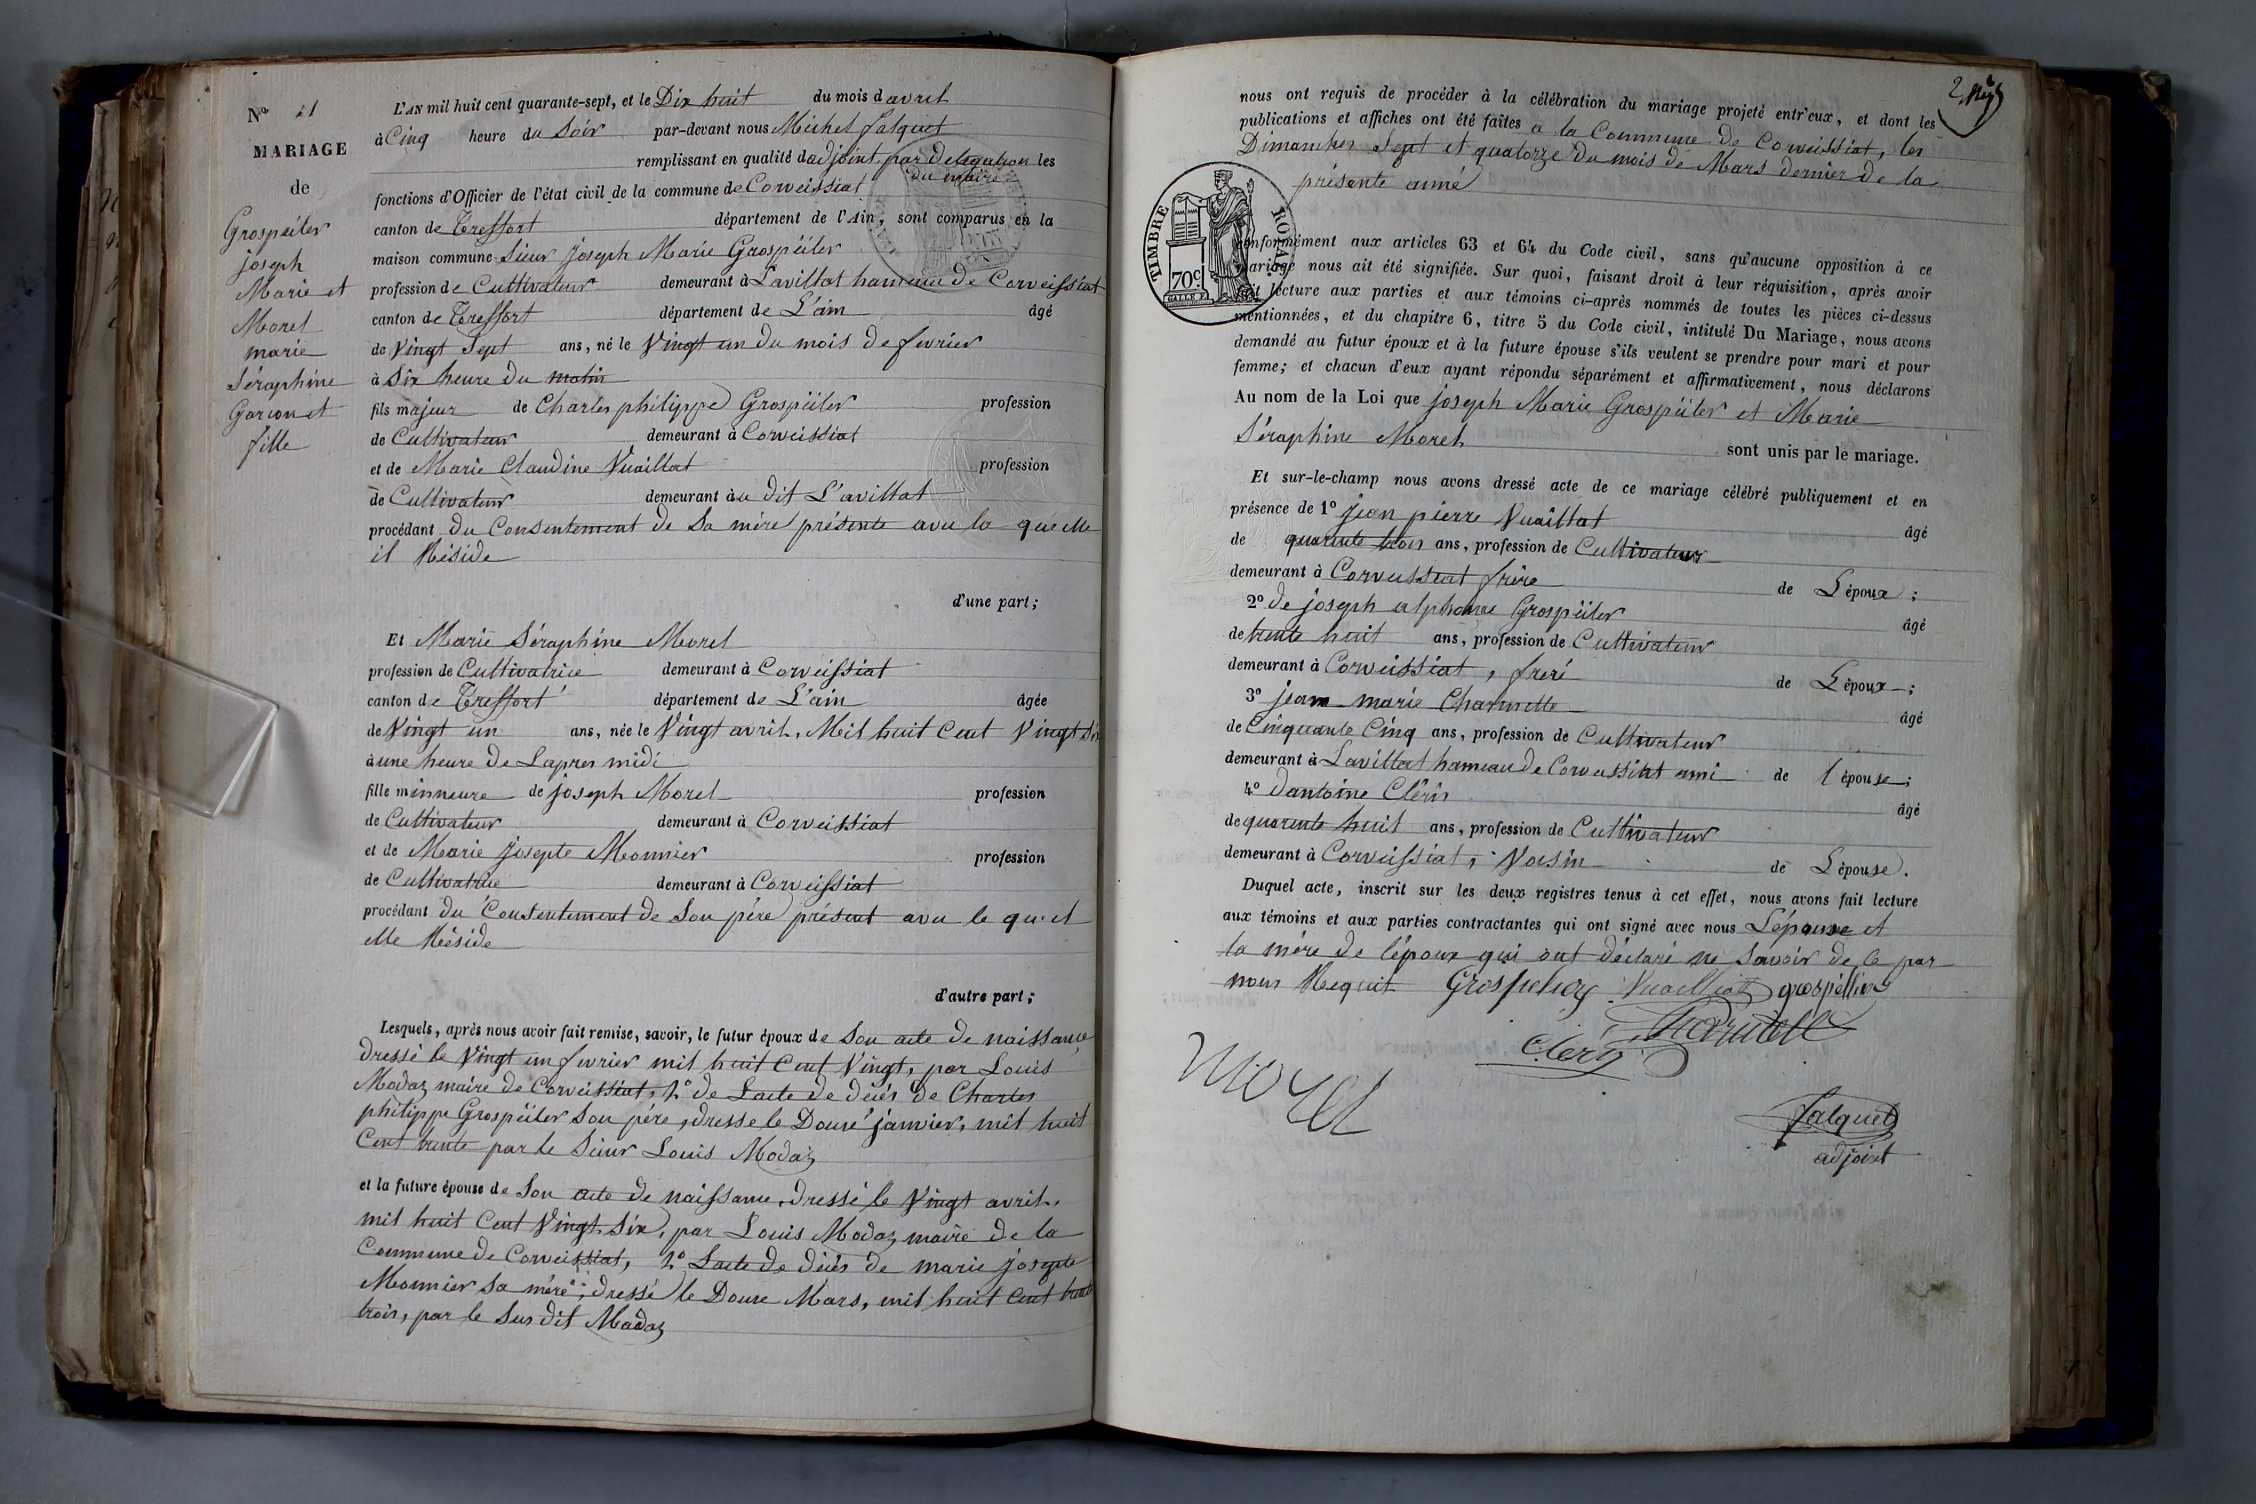 N° 21
MARIAGE
de
Grospéiler
joseph
Marie et
Morel
marie
Séraphine
Garcon et
fille
L'AN mil huit cent quarante-sept, et le Dix huit du mois d avril
à Cinq heure du Soir par-devant nous Michel falquet
remplissant en qualité d adjoint par Delegation les
du maire
fonctions d'Officier de l'état civil de la commune de Corveissiat
canton de Treffort département de l'Ain, sont comparus en la
maison commune Sieur joseph Marie Grospéiler
profession de Cultivateur demeurant à Lavillat hameau De Corveissiat
canton de Treffort département de L'ain âgé
de Vingt Sept ans, né le Vingt un Du mois De fevrier
à Six heure Du matin
fils majeur de Charles philippe Grospéiler profession
de Cultivateur demeurant à Corveissiat
et de Marie Claudine Vuaillat profession
de Cultivateur demeurant à u Dit L'avillat
procédant Du Consentement de Sa mére présente avu la quelle
il Réside
d'une part;
Et Marie Séraphine Morel
profession de Cultivatrice demeurant à Corveissiat
canton de Treffort département de L'ain âgée
de Vingt un ans, née le Vingt avril, Mil huit Cent Vingt Six
à une heure De Lapres midi
fille minneure de joseph Morel profession
de Cultivateur demeurant à Corveissiat
et de Marie josepte Monnier profession
de Cultivatrice demeurant à Corveissiat
procédant Du Consentement De Son pére présent avu le quel
elle Réside
d'autre part;
Lesquels, après nous avoir fait remise, savoir, le futur époux de Son acte De naissance
Dressé le Vingt un fevrier mil huit Cent Vingt, par Louis
Modaz maire de Corveissiat, 2° De Lacte De décés De Charles
philippe Grospéiler Son pére, Dresse le Douzé janvier, mil huit
Cent trente par le Sieur Louis Modaz
et la future épouse de Son acte De naissance, Dressé le Vingt avril,
mil huit Cent Vingt Six, par Louis Modaz maire De la
Commune De Corveissiat, 2° Lacte De décés De marie josepte
Monnier Sa mére, Dressé le Douze Mars, mil huit Cent trente
trois, par le Sus Dit Modaz
nous ont requis de procéder à la célébration du mariage projeté entr'eux, et dont les
publications et affiches ont été faites a la Commune De Corveissiat, les
Dimanches Sept et quatorze Du mois De Mars Dernier De la
présente anné
TIMBRE ROYAL
70c
conformément aux articles 63 et 64 du Code civil, sans qu'aucune opposition à ce
mariage nous ait été signifiée. Sur quoi, faisant droit à leur réquisition, après avoir
fait lecture aux parties et aux témoins ci-après nommés de toutes les pièces ci-dessus
mentionnées, et du chapitre 6, titre 5 du Code civil, intitulé Du Mariage, nous avons
demandé au futur époux et à la future épouse s'ils veulent se prendre pour mari et pour
femme; et chacun d'eux ayant répondu séparément et affirmativement, nous déclarons
Au nom de la Loi que joseph Marie Grospéiler et Marie
Séraphine Morel sont unis par le mariage.
Et sur-le-champ nous avons dressé acte de ce mariage célébré publiquement et en
présence de 1° jean pierre Vuaillat âgé
de quarante trois ans, profession de Cultivateur
demeurant à Corveissiat frére de L'époux;
2° De joseph alphonse Grospéiler âgé
de trente huit ans, profession de Cultivateur
demeurant à Corveissiat, freré de L'époux;
3° jean marie Channelle âgé
de Cinquante Cinq ans, profession de Cultivateur
demeurant à Lavillat hameau De Corveissiat ami de l'épouse;
4° Dantoine Cléris âgé
de quarente huit ans, profession de Cultivateur
demeurant à Corveissiat, Voisin de L'épouse.
Duquel acte, inscrit sur les deux registres tenus à cet effet, nous avons fait lecture
aux témoins et aux parties contractantes qui ont signé avec nous L'épouse et
la mére De l'époux qui ont Déclaré ne Savoir De le par
nous Requit Vuaillat grospéllier
Morel
falquet
adjoint